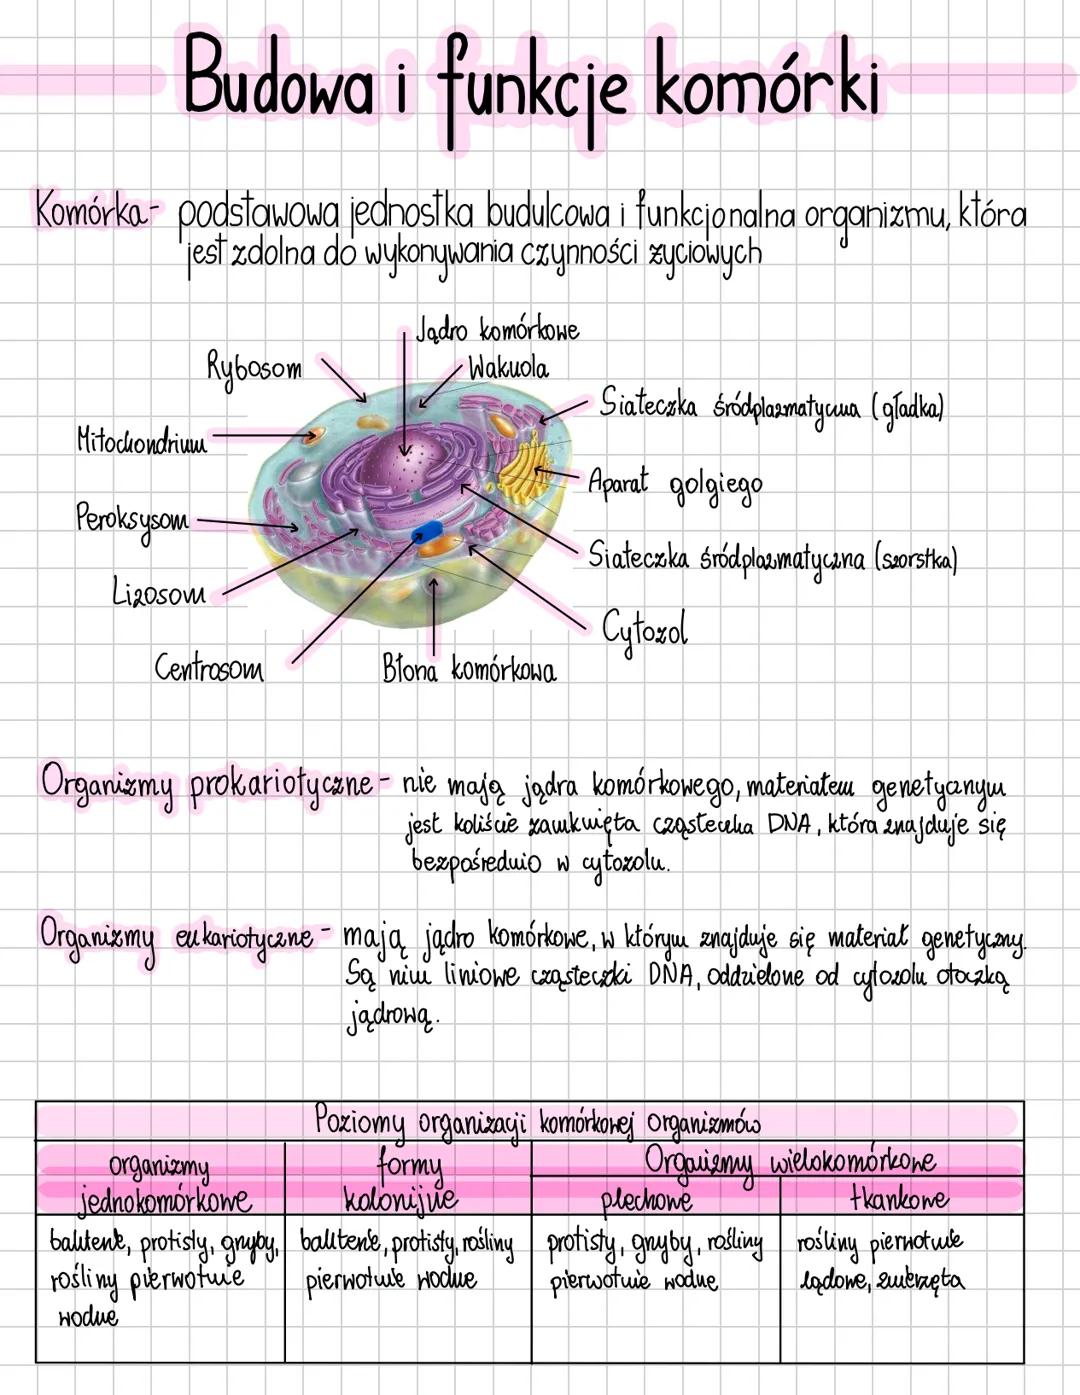 Budowa i funkcje komórki
Komórka- podstawowa jednostka budulcowa i funkcjonalna organizmu, która
jest zdolna do wykonywania czynności życiowych
Jądro komórkowe
Rybosom
Wakuola
Siateczka śródplazmatyczna (gładka)
Mitochondrium
Aparat golgiego
Peroksysom
Siateczka śródplazmatyczna (szorstka)
Lizosom
Cytozol
Centrosom
Błona komórkowa
Organizmy prokariotyczne - nie mają jądra komórkowego, materiałem genetycznym
jest koliście zamknięta cząsteczka DNA, która znajduje się
bezpośrednio w cytozolu.
Organizmy eukariotyczne - mają jądro komórkowe, w którym znajduje się materiał genetyczny.
Są nim liniowe cząsteczki DNA, oddzielone od cytozolu otoczką
jądrową.
Poziomy organizacji komórkowej organizmów
organizmy jednokomórkowe
formy kolonijne
Organizmy wielokomórkowe
plechowe
tkankowe
bakterie, protisty, grzyby,
rośliny pierwotnie
wodne
bakterie, protisty, rośliny
pierwotnie wodne
protisty, grzyby, rośliny
pierwotnie wodne
rośliny pierwotnie
lądowe, zwierzęta